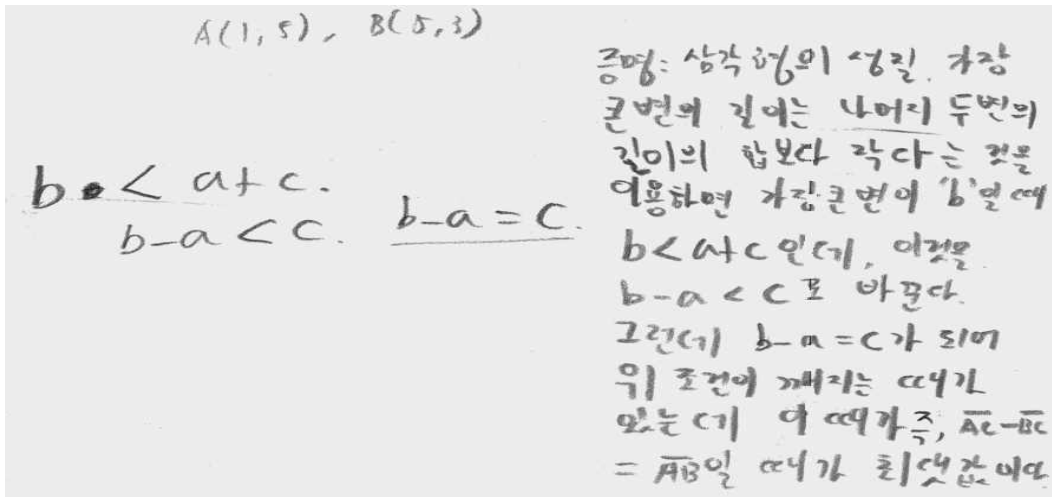 A(1,5), B(5,3)
b < a+c.
b-a < c. b-a = c.
증명: 삼각형의 성질. 가장
큰 변의 길이는 나머지 두변의
길이의 합보다 작다는 것을
이용하면 가장 큰 변이 'b'일 때
b < a+c 인데, 이것을
b-a < c 로 바꾼다.
그런데 b-a = c가 되어
위 조건이 깨지는 때가
있는데 이 때가 즉, AC-BC
= AB일 때가 최댓값이다